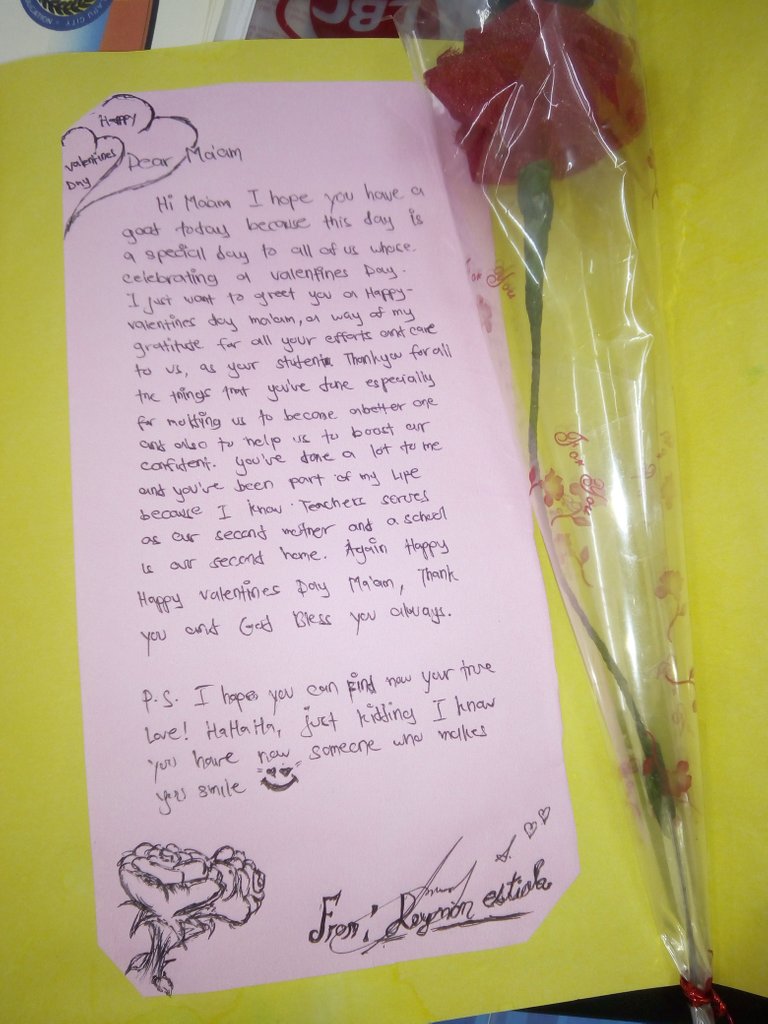 Happy
Valentines
Day
Dear Ma'am
Hi Ma'am I hope you have a
goot today because this day is
a special day to all of us whose
celebrating a valentines Day.
I just want to greet you a Happy-
valentines day ma'am, a way of my
gratitude for all your efforts and care
to us, as your student. Thankyou for all
the things that you've done especially
for molding us to become abetter one
and also to help us to boost our
confident. you've done a lot to me
and you've been part of my life
because I know Teachers serves
as our second mother and a school
is our second home. Again Happy
Happy valentines Day Ma'am, Thank
you and God Bless you always.
P.S. I hope you can find now your true
love! HaHaHa, just kidding I know
you have now someone who makes
your smile
From: Reymon estiola
For You
For You